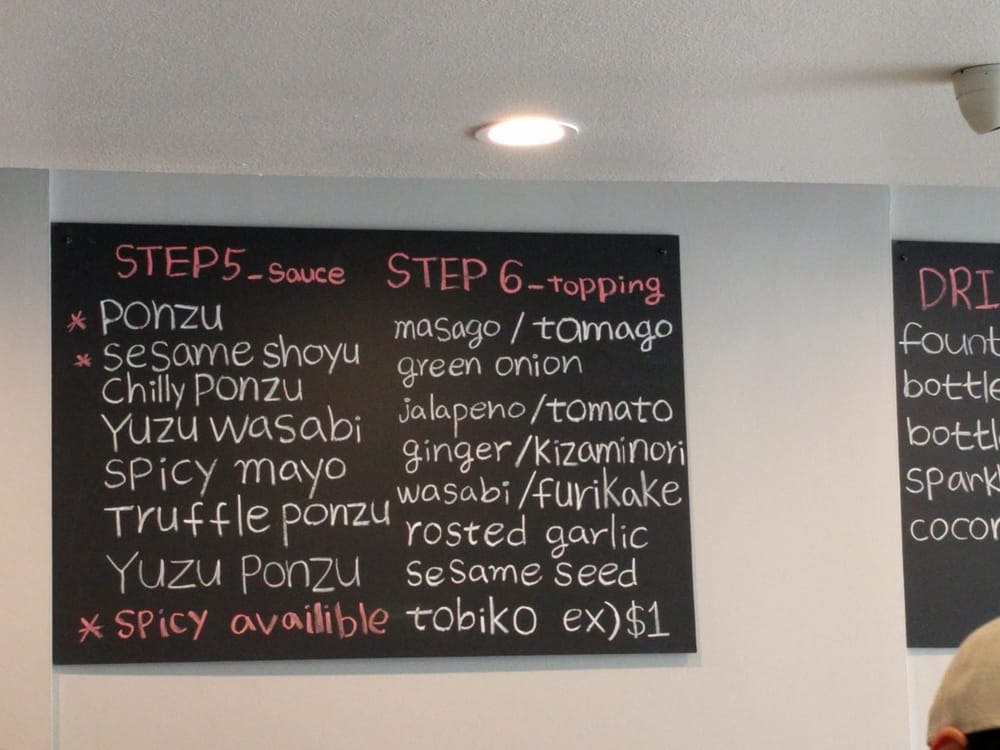 STEP5-sauce
* PONZU
* sesame shoyu
chilly ponzu
YUZU wasabi
SPICY mayo
Truffle ponzu
YUZU PONZU
* SPICY availible
STEP 6-topping
masago / tamago
green onion
jalapeno/tomato
ginger/kizaminori
wasabi/furikake
rosted garlic
sesame seed
tobiko ex)$1
DRI
fount
bottle
bottl
spark
cocon